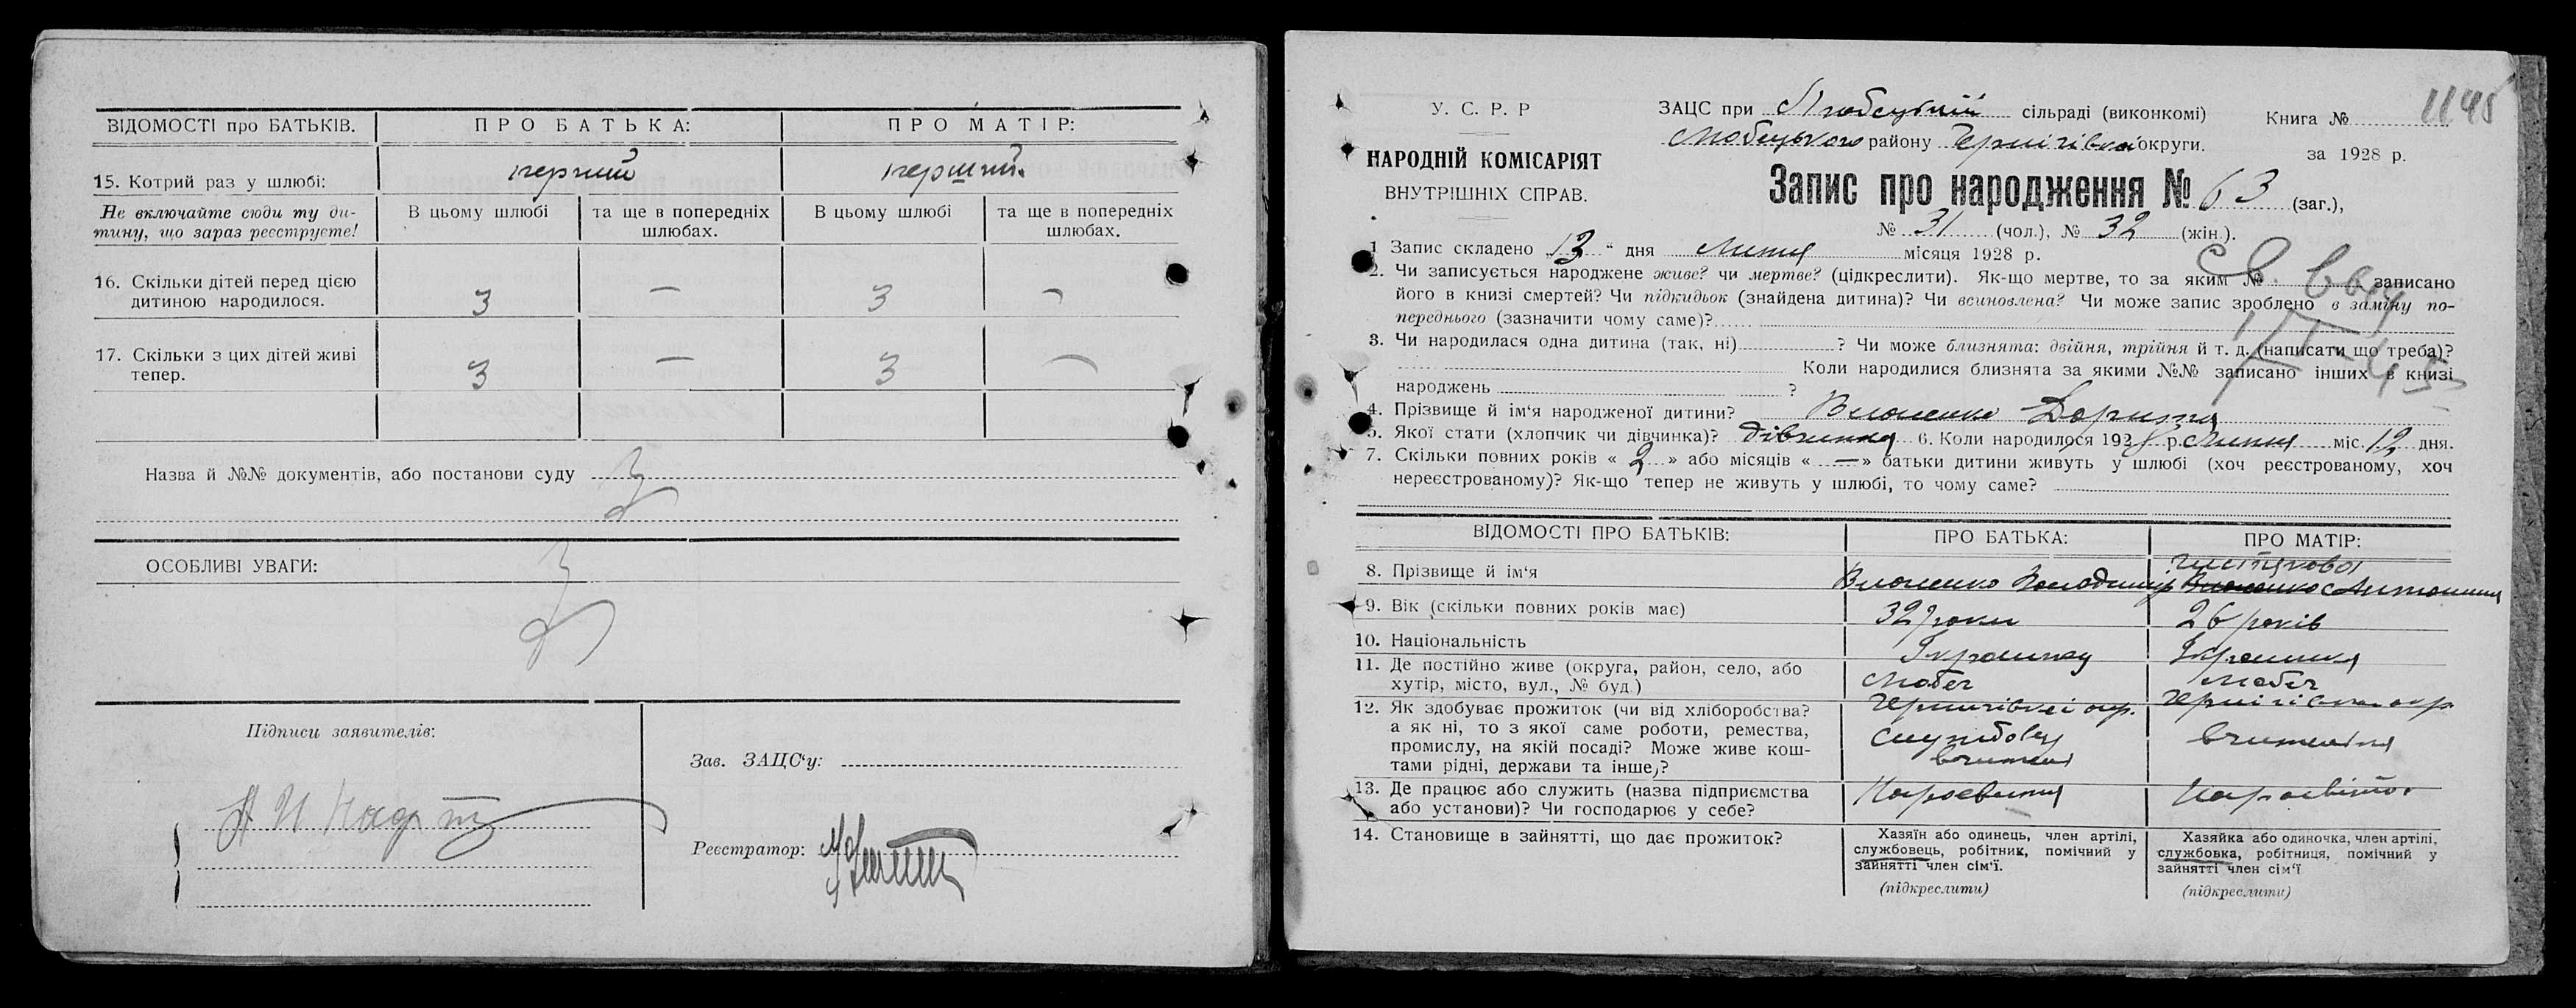 ВІДОМОСТІ про БАТЬКІВ. ПРО БАТЬКА: ПРО МАТІР:
15. Котрий раз у шлюбі: перший перший.
Не включайте сюди ту ди-
тину, що зараз реєструєте!
В цьому шлюбі
та ще в попередніх
шлюбах.
В цьому шлюбі
та ще в попередніх
шлюбах.
16. Скільки дітей перед цією
дитиною народилося. 3 — 3 —
17. Скільки з цих дітей живі
тепер. 3 — 3 —
Назва й №№ документів, або постанови суду
ОСОБЛИВІ УВАГИ:
Підписи заявителів:
Зав. ЗАЦС'у:
Реєстратор:
1145
У. С. Р. Р
НАРОДНІЙ КОМІСАРІЯТ
ВНУТРІШНІХ СПРАВ.
ЗАЦС при Любецькій сільраді (виконкомі)
Любецького району Чернігівської округи.
Книга №
за 1928 р.
Запис про народження № 63 (заг.),
№ 31 (чол.), № 32 (жін.).
1 Запис складено 13 " дня липня місяця 1928 р.
2. Чи записується народжене живе? чи мертве? (підкреслити). Як-що мертве, то за яким № записано
його в книзі смертей? Чи підкидьок (знайдена дитина)? Чи всиновлена? Чи може запис зроблено в заміну по-
переднього (зазначити чому саме)?
3. Чи народилася одна дитина (так, ні) ? Чи може близнята: двійня, трійня й т. д. (написати що треба)?
Коли народилися близнята за якими №№ записано інших в книзі
народжень ?
4. Прізвище й ім'я народженої дитини?
5. Якої стати (хлопчик чи дівчинка)? дівчинка 6. Коли народилося 1928 р. липня міс. 12 дня.
7. Скільки повних років « 2 » або місяців « — » батьки дитини живуть у шлюбі (хоч реєстрованому, хоч
нереєстрованому)? Як-що тепер не живуть у шлюбі, то чому саме?
ВІДОМОСТІ ПРО БАТЬКІВ: ПРО БАТЬКА: ПРО МАТІР:
8. Прізвище й ім'я Володимир Антонина
9. Вік (скільки повних років має) 32 роки 26 років
10. Національність
11. Де постійно живе (округа, район, село, або
хутір, місто, вул., № буд.) Любеч Любеч
12. Як здобуває прожиток (чи від хліборобства?
а як ні, то з якої саме роботи, ремества,
промислу, на якій посаді? Може живе кош-
тами рідні, держави та інше,?
13. Де працює або служить (назва підприємства
або установи)? Чи господарює у себе?
14. Становище в зайнятті, що дає прожиток?
Хазяїн або одинець, член артілі,
службовець, робітник, помічний у
зайнятті член сім'ї.
(підкреслити)
Хазяйка або одиночка, член артілі,
службовка, робітниця, помічний у
зайнятті член сім'ї
(підкреслити)